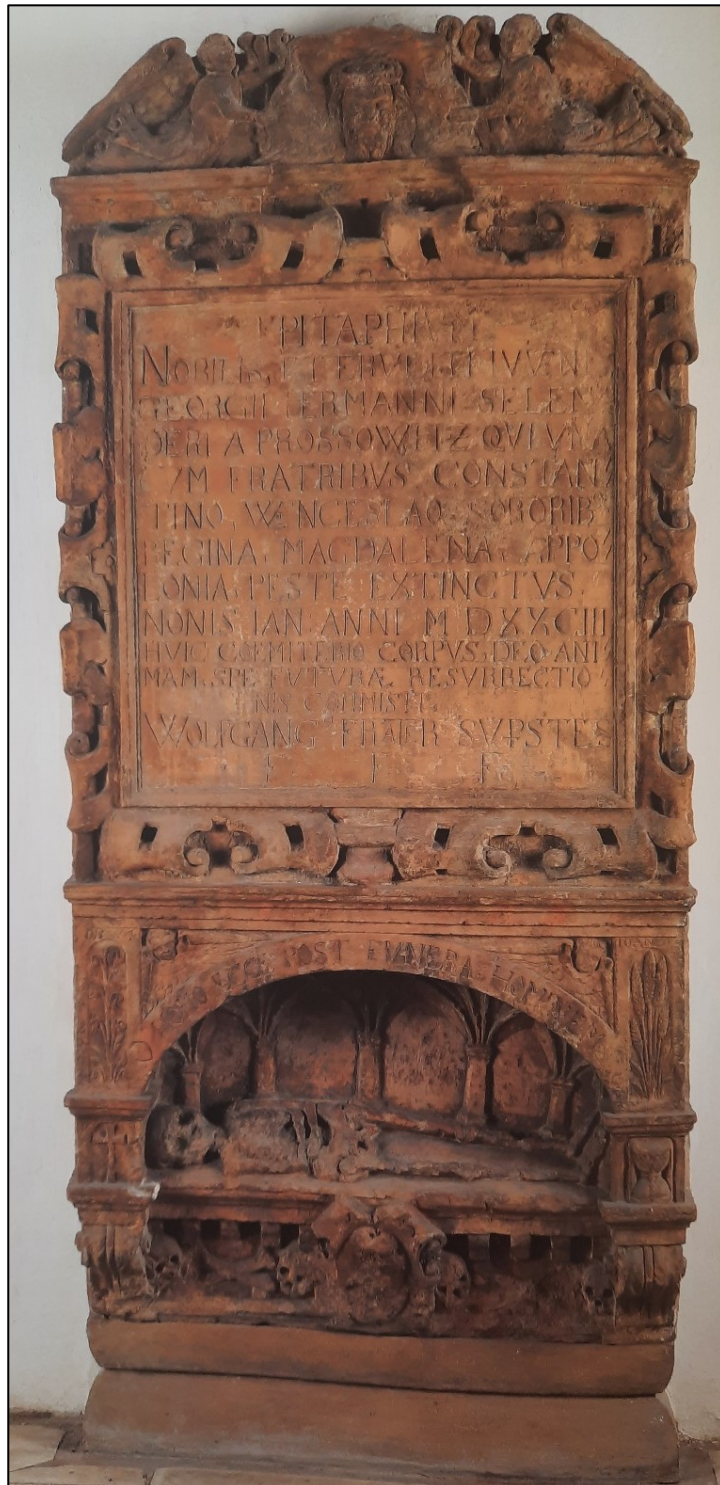 EPITAPHIVM
NOBILIS, ET ERVDITI IVVENIS
GEORGII HERMANNI SELEN⸗
DERI A PROSSOWITZ QVI VNA
CVM FRATRIBVS CONSTAN⸗
TINO, WENCESLAO, SORORIB9
REGINA, MAGDALENA, APPO⸗
LONIA, PESTE EXTINCTVS
NONIS IAN. ANNI M D XXC III
HVIC COEMITERIO CORPVS, DEO ANI⸗
MAM, SPE FVTVRÆ RESVRRECTIO⸗
NIS COMMISIT.
WOLFGANG9 FRATER SVPSTES
F F F
POST FVNERA